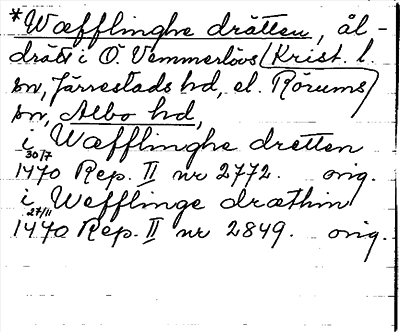 *Wæfflinghe drätten, ål-
drätt i Ö. Vemmerlövs (Krist. l.
sn, Järrestads hd, el. Rörums
sn, Albo hd,
i Wæfflinghe dretten
30/7
1470 Rep. II nr 2772. orig.
i Wefflinge dræthin
27/11
1470 Rep. II nr 2849. orig.